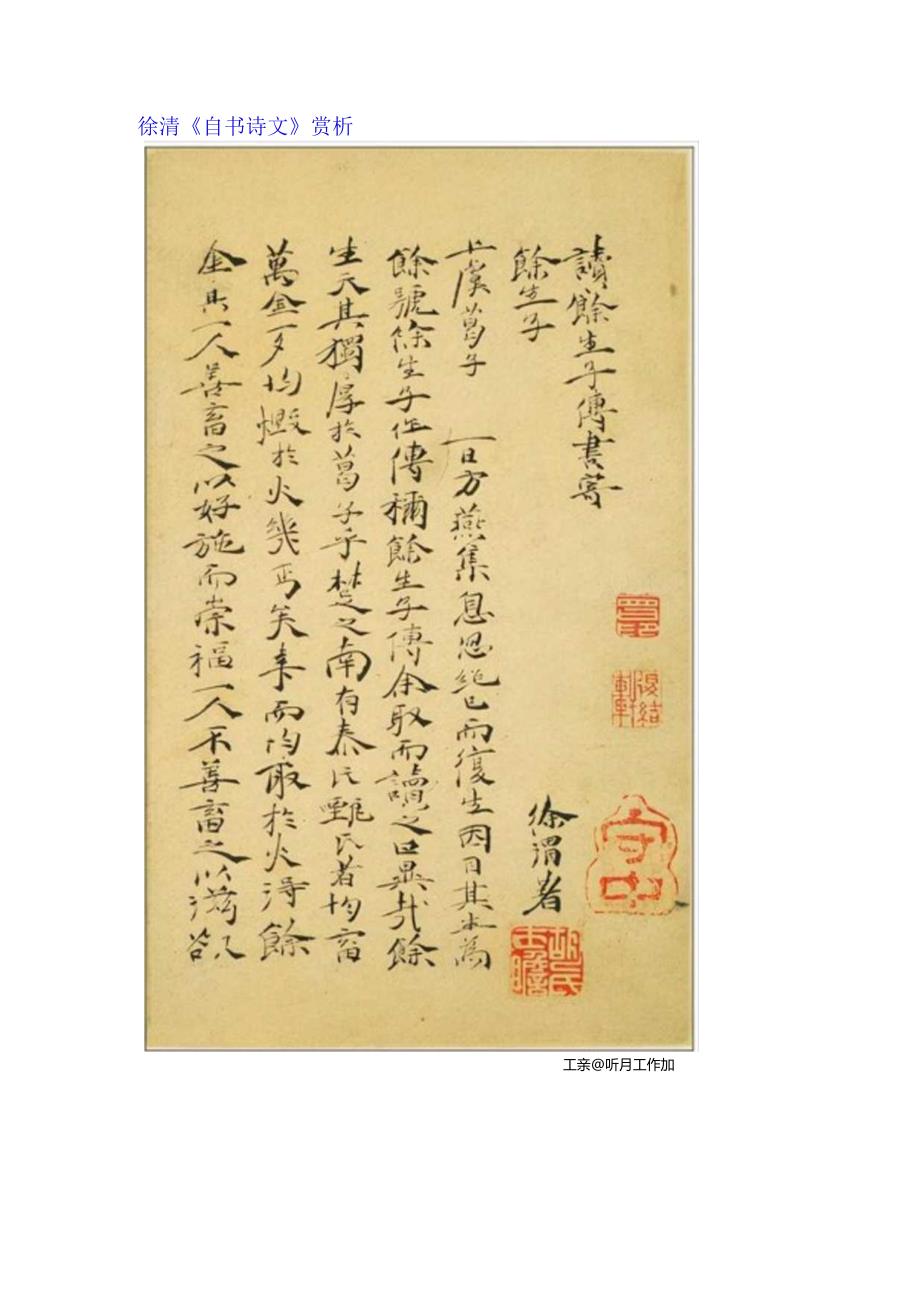 徐清《自书诗文》赏析
讀餘生子傳書寄
餘生子
徐渭著
上虞葛子 一日方燕集息忽絕已而復生因自其生為
餘號徐生子作傳稱餘生子傳余取而讀之曰異哉餘
生天其獨厚於葛子乎楚之南有秦氏甄氏者均畜
萬金一夕均燬於火幾丐矣事而均取於火得餘
金其一人善畜之以好施而崇福一人不善畜之以滋
守中
工亲@听月工作加